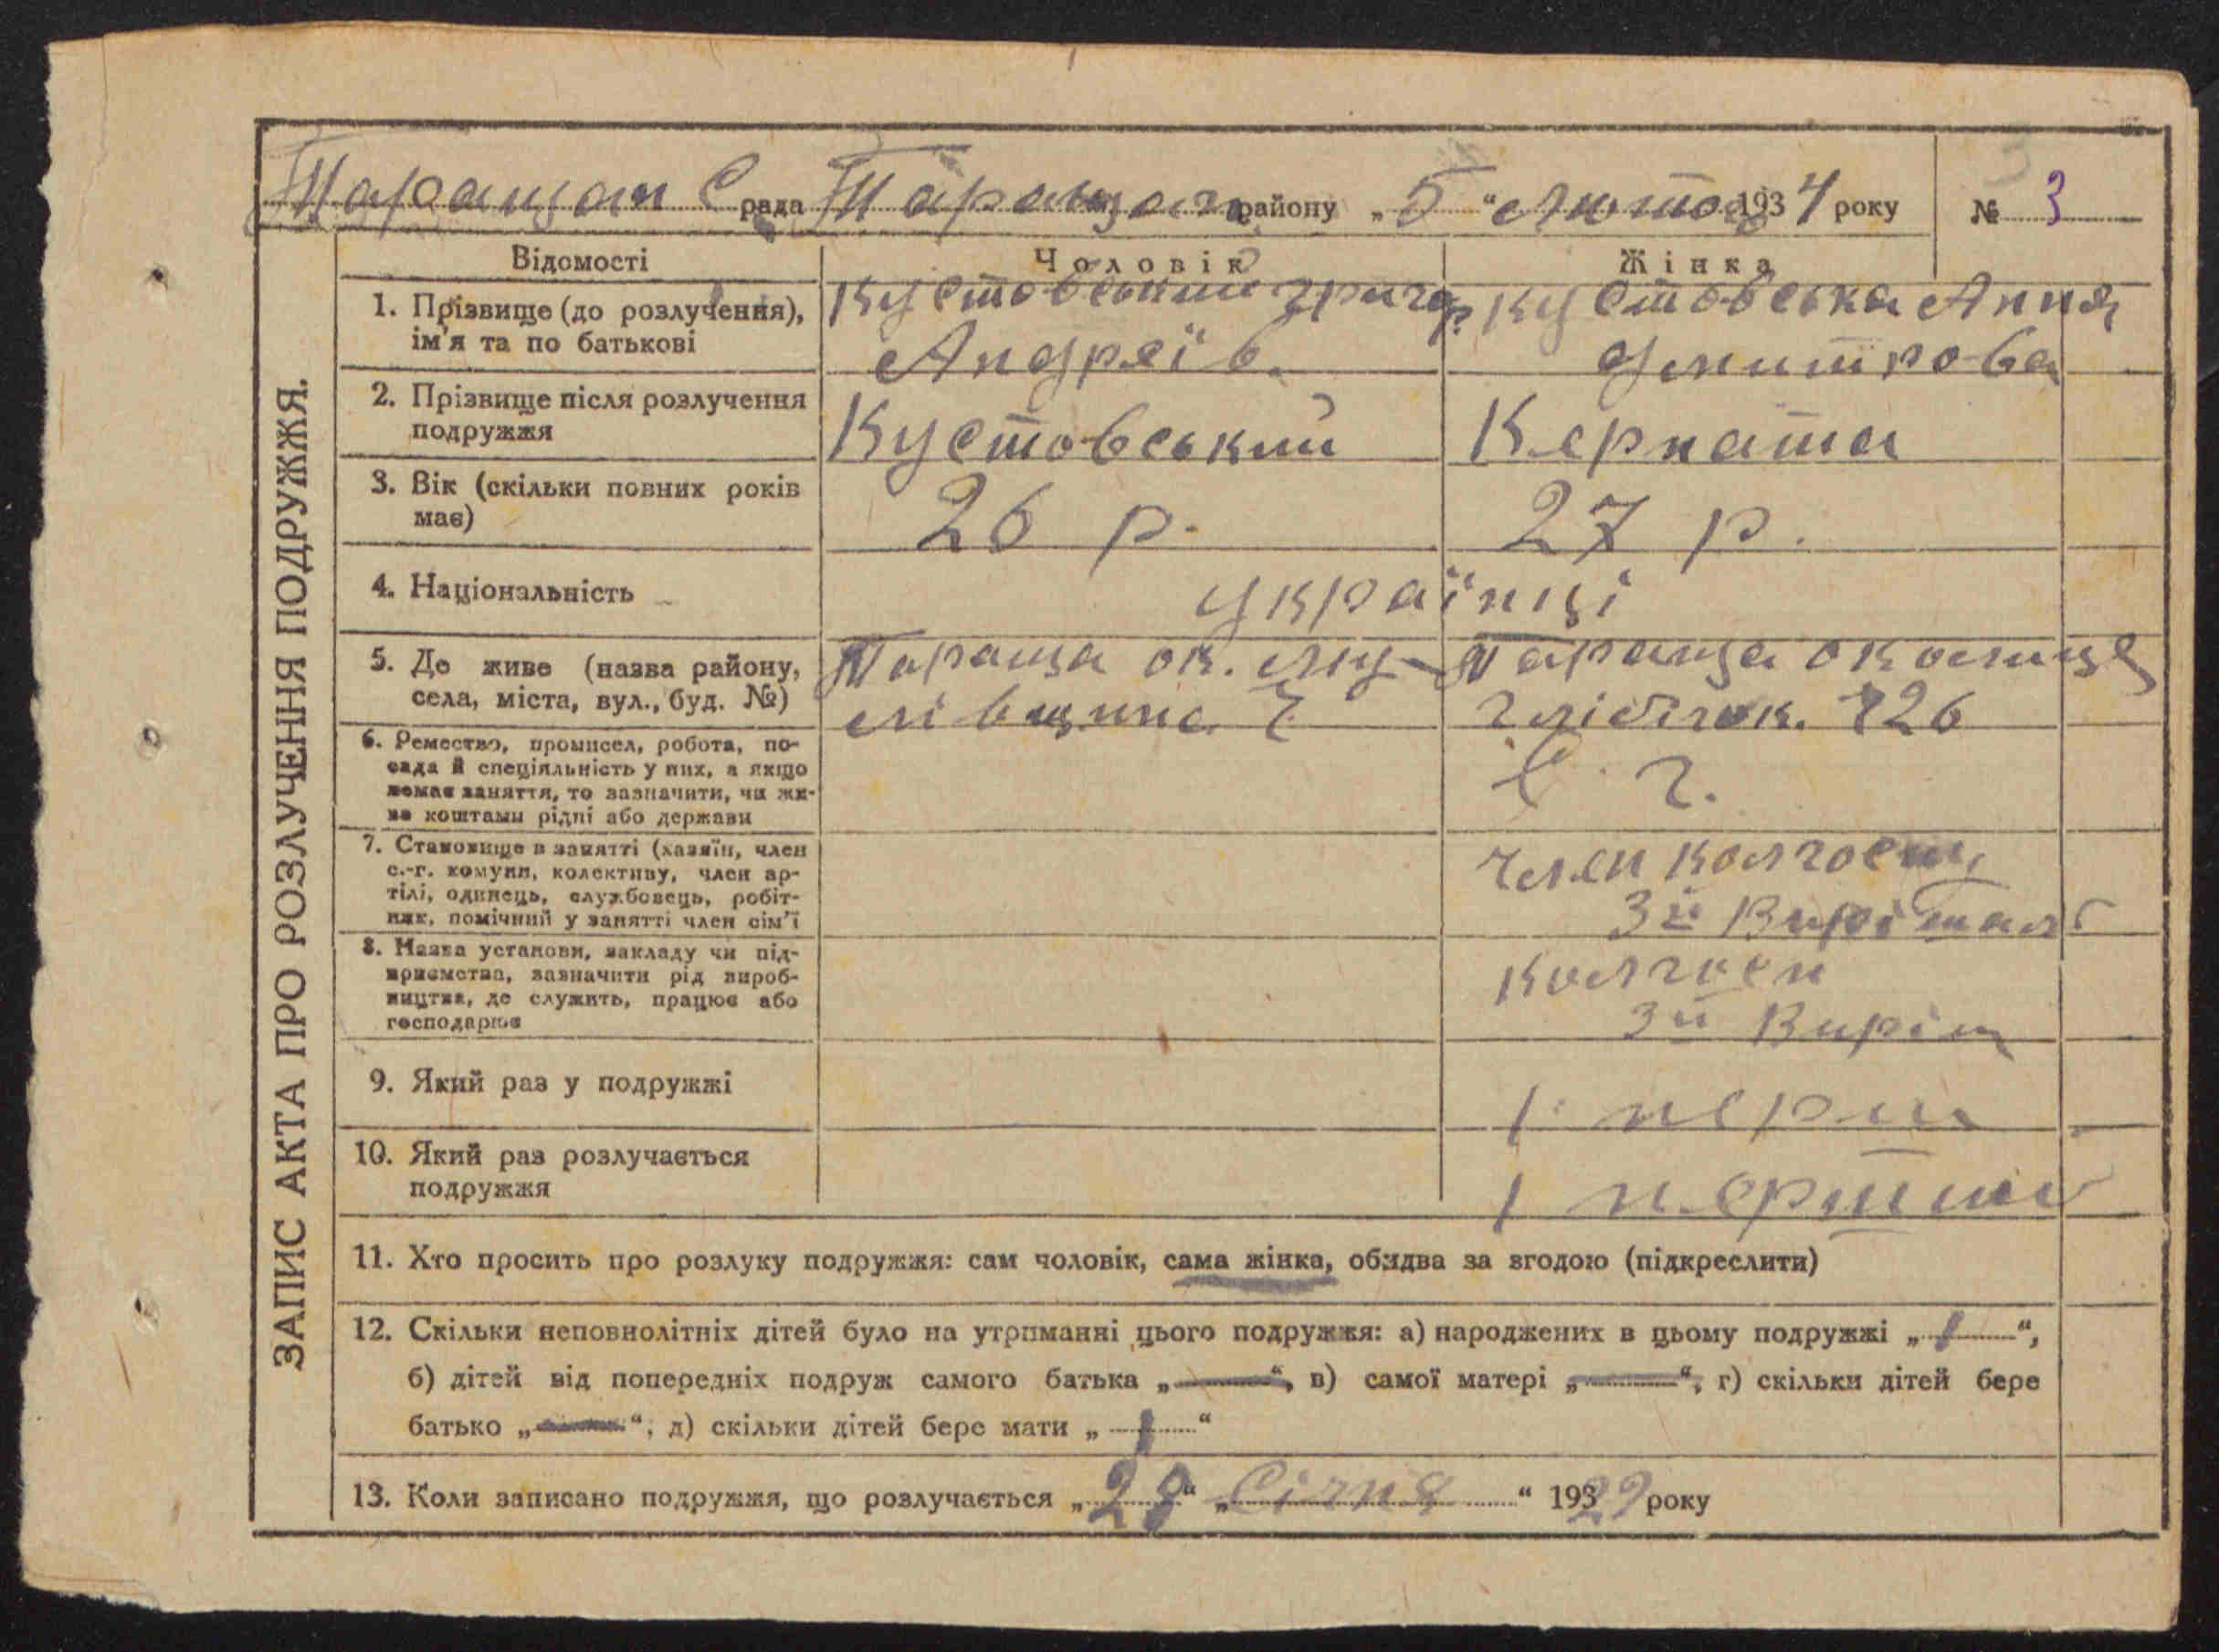 ЗАПИС АКТА ПРО РОЗЛУЧЕННЯ ПОДРУЖЖЯ.
Таращан С рада Таращан району „ 5 “ лютого 1934 року № 3
Відомості Чоловік Жінка
1. Прізвище (до розлучення), ім'я та по батькові
Кустовський Григор
Андреїв.
Кустовська Анна
Дмитрова
2. Прізвище після розлучення подружжя
Кустовський
3. Вік (скільки повних років має)
26 р.
27 р.
4. Національність
українці
5. Де живе (назва району, села, міста, вул., буд. №)
Тараща ок.
Тараща околиця
126
6. Ремество, промисел, робота, по-
сада й спеціяльність у них, а якщо
немає заняття, то зазначити, чи жи-
ве коштами рідні або держави
С. г.
7. Становище в занятті (хазяїн, член
с.-г. комуни, колективу, член ар-
тілі, одинець, службовець, робіт-
ник, помічний у занятті член сім'ї
член колгоспу
3й Вирішаль
8. Назва установи, закладу чи під-
приємства, зазначити рід вироб-
ництва, де служить, працює або
господарює
колгосп
3й Виріш
9. Який раз у подружжі
1 перш
10. Який раз розлучається
подружжя
1 перший
11. Хто просить про розлуку подружжя: сам чоловік, сама жінка, обидва за згодою (підкреслити)
12. Скільки неповнолітніх дітей було на утриманні цього подружжя: а) народжених в цьому подружжі „ 1 “,
б) дітей від попередніх подруж самого батька „—“, в) самої матері „—“, г) скільки дітей бере
батько „—“; д) скільки дітей бере мати „ 1 “
13. Коли записано подружжя, що розлучається „ 28 “ „ Січня “ 1929 року